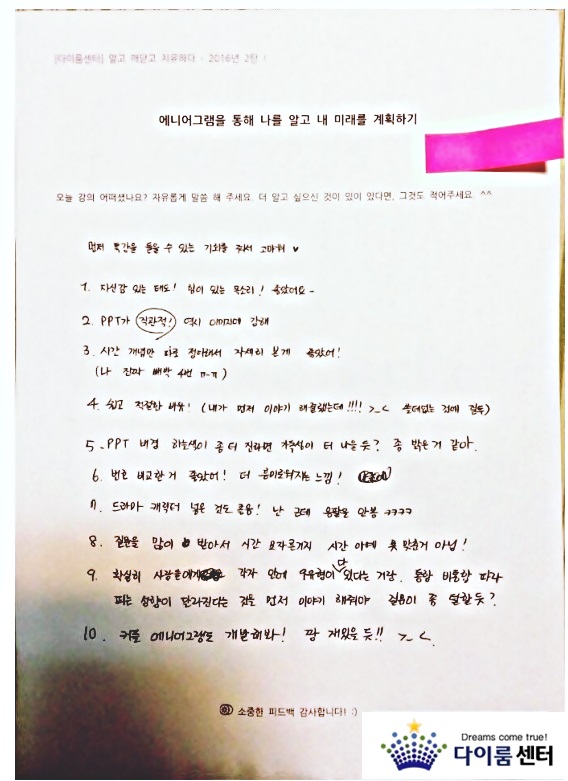 [다이룸센터] 알고 깨닫고 치유하다 - 2016년 2탄 !
에니어그램을 통해 나를 알고 내 미래를 계획하기
오늘 강의 어떠셨나요? 자유롭게 말씀 해 주세요. 더 알고 싶으신 것이 있이 있다면, 그것도 적어주세요. ^^
먼저 특강을 들을 수 있는 기회를 줘서 고마워 ♥
1. 자신감 있는 태도! 힘이 있는 목소리! 좋았어요~
2. PPT가 직관적! 역시 이미지에 강해
3. 시간 개념만 따로 정리해서 자세히 본게 좋았어!
(나 진짜 빼박 4번 ㅠ-ㅠ)
4. 쉽고 적절한 비유! (내가 먼저 이야기 해줬는데!!!! >_< 쓸데없는 것에 질투)
5. PPT 배경 하늘색이 좀 더 진하면 가독성이 더 나을 듯? 좀 밝은 거 같아.
6. 번호 비교한 거 좋았어! 더 분이 되는 느낌!
7. 드라마 캐릭터 넣은 것도 좋음! 난 근데 응팔을 안봄 ㅋㅋㅋㅋ
8. 질문을 많이 받아서 시간 모자른거지 시간 아예 못 맞춘거 아님!
9. 확실히 사람들에게 각자 안에 9유형이 다 있다는 거랑. 통합 비통합 따라
피는 성향이 달라진다는 것을 먼저 이야기 해줘야 질문이 좀 덜할듯?
10. 커플 에니어그램도 개발해봐! 짱 재밌을 듯!! >_<
소중한 피드백 감사합니다! :)
Dreams come true!
다이룸센터